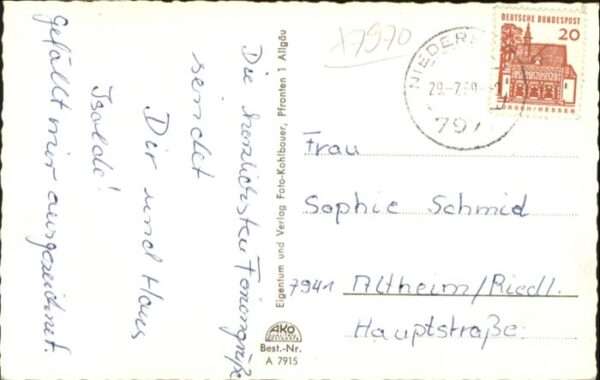 Die herzlichsten Feriengrüße
sendet
Dir und Hans
Isolde!
Gefällt mir ausgezeichnet.
Eigentum und Verlag Foto-Kohlbauer, Pfronten 1 Allgäu
AKO
Best.-Nr.
A 7915
17970
DEUTSCHE BUNDESPOST
20
LORSCH/HESSEN
29.-7.69.-
797
Frau
Sophie Schmid
7941 Altheim/Riedl.
Hauptstraße: